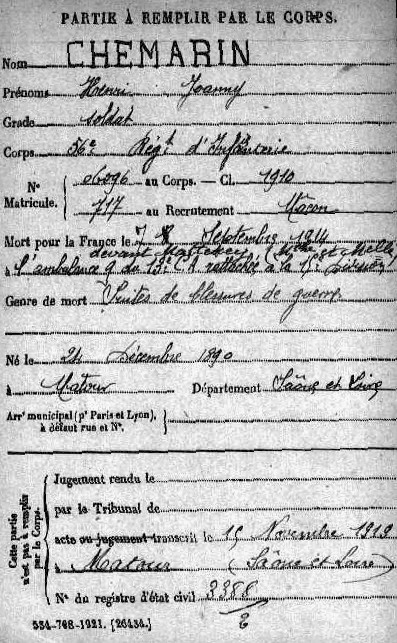 PARTIE À REMPLIR PAR LE CORPS.
Nom CHEMARIN
Prénoms Henri Joanny
Grade Soldat
Corps 56e Régt d'Infanterie
N° Matricule. 06096 au Corps. — Cl. 1910
717 au Recrutement Mâcon
Mort pour la France le 7 Septembre 1914
devant (Mthe et Mlle)
à l'ambulance 9 du 13e C.A rattachée à la
Genre de mort Suites de blessures de guerre
Né le 24 Décembre 1890
à Matour Département Saône et Loire
Arrt municipal (pr Paris et Lyon), à défaut rue et N°.
Cette partie n'est pas à remplir par le Corps.
Jugement rendu le
par le Tribunal de
acte ou jugement transcrit le 15 Novembre 1919
à Matour (Saône et Loire)
N° du registre d'état civil 3388
2
534-708-1921. [26434.]